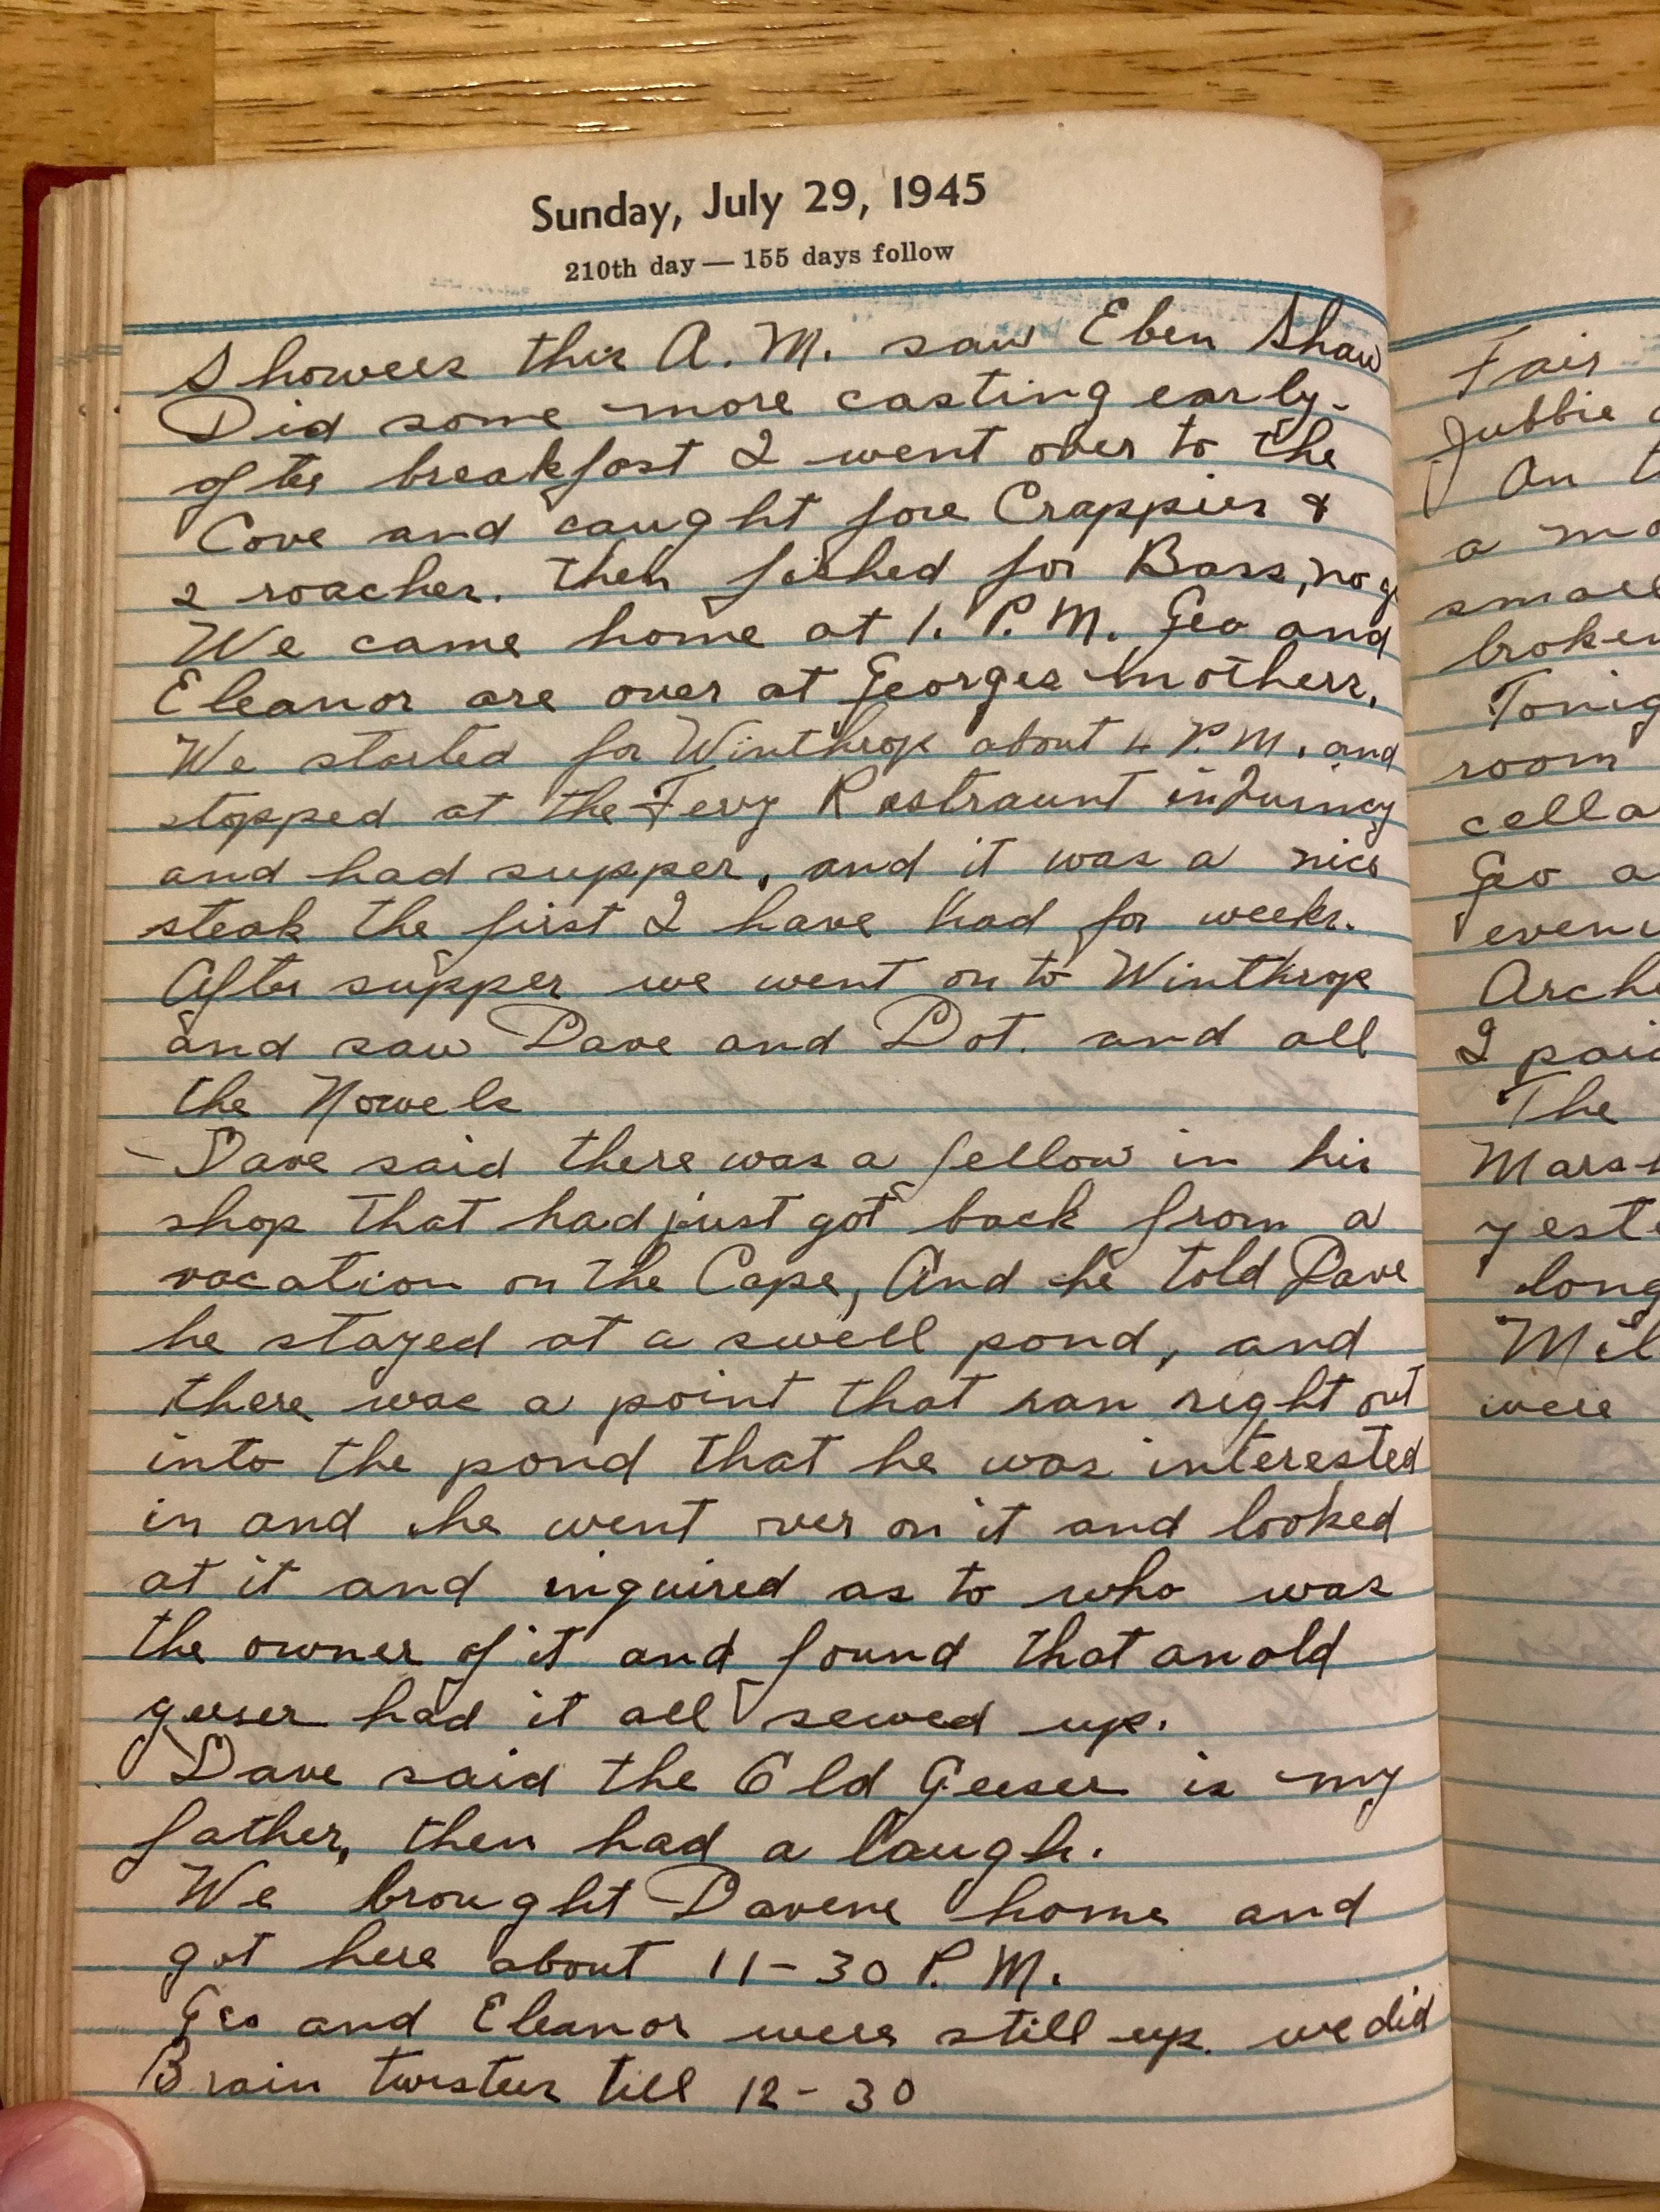 Sunday, July 29, 1945
210th day — 155 days follow
Showers this A.M. saw Eben Shaw
Did some more casting early.
after breakfast I went over to the
Cove and caught five Crappies &
2 roaches. then fished for Bass, no g
We came home at 1. P.M. Geo and
Eleanor are over at Georges Mothers.
We started for Winthrop about 4 P.M. and
stopped at the Ferry Rastraunt in Quincy
and had supper, and it was a nice
steak the first I have had for weeks.
After supper we went on to Winthrop
and saw Dave and Dot. and all
the Nowels
Dave said there was a fellow in his
shop that had just got back from a
vacation on the Cape, And he told Dave
he stayed at a swell pond, and
there was a point that ran right out
into the pond that he was interested
in and he went over on it and looked
at it and inquired as to who was
the owner of it and found that an old
geeser had it all sewed up.
Dave said the Old Geeser is my
father, then had a laugh.
We brought Davene home and
got here about 11-30 P.M.
Geo and Eleanor were still up. we did
Brain twisters till 12-30
Fair
Jubbie
On t
a mo
small
broken
Tonig
room
cella
Geo a
eveni
Arch
I pai
The
Mars
yeste
long
Mil
were